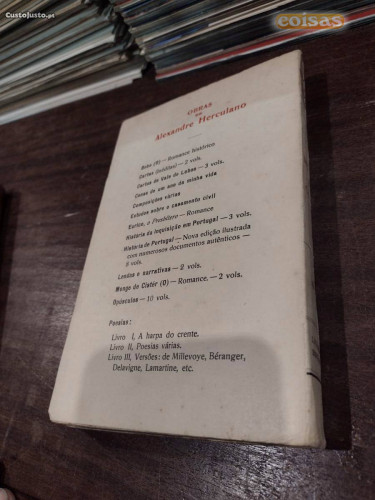 CustoJusto.pt
coisas!
OBRAS
DE
Alexandre Herculano
Bobo (O) — Romance histórico
Cartas (Inéditas) — 2 vols.
Cartas de Vale de Lobos — 3 vols.
Cenas de um ano da minha vida
Composições várias
Estudos sobre o casamento civil
Eurico, o Presbítero — Romance
História da Inquisição em Portugal — 3 vols.
História de Portugal — Nova edição ilustrada
com numerosos documentos autênticos —
8 vols.
Lendas e narrativas — 2 vols.
Monge de Cistér (O) — Romance. — 2 vols.
Opúsculos — 10 vols.
Poesias:
Livro I, A harpa do crente.
Livro II, Poesias várias.
Livro III, Versões: de Millevoye, Béranger,
Delavigne, Lamartine, etc.